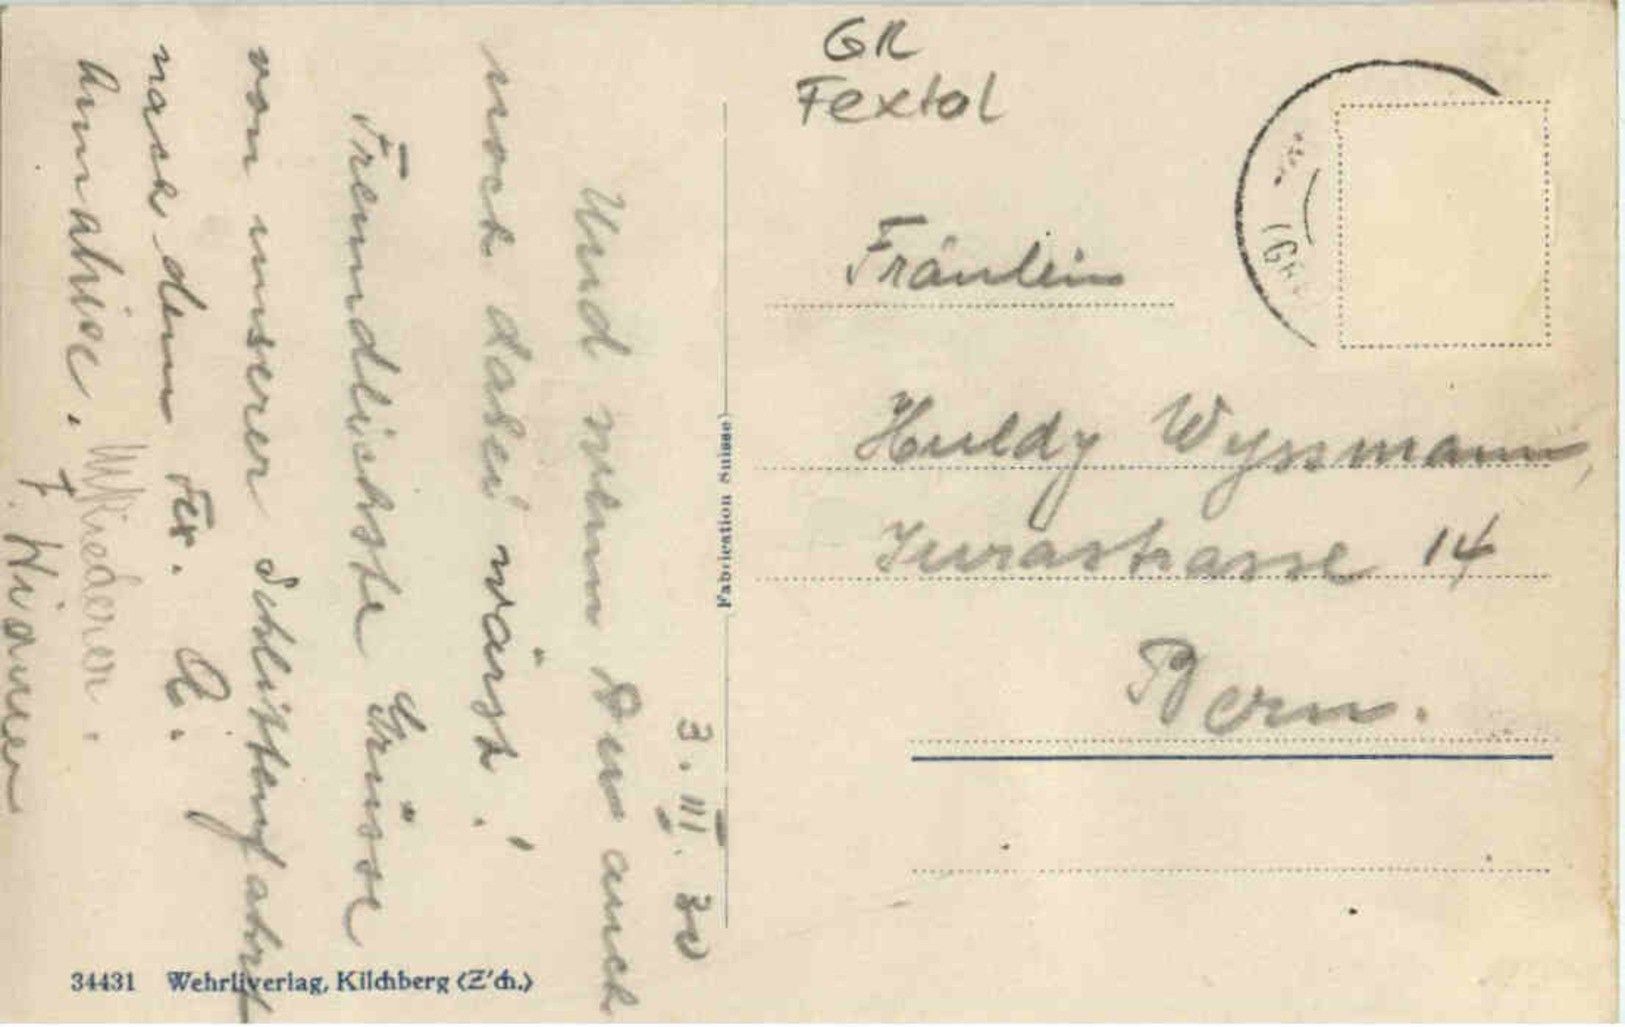 GR
Fextal
3. III. 30
Und wenn Du auch
noch dabei wärst!
Freundlichste Grüsse
von unserer Schlittenfahrt
nach dem Fex. A.
Annalise.
F.
Fräulein
Huldy Wyssmann,
Jurastrasse 14
Bern.
Fabrication Suisse
34431 Wehrliverlag, Kilchberg (Z'ch.)